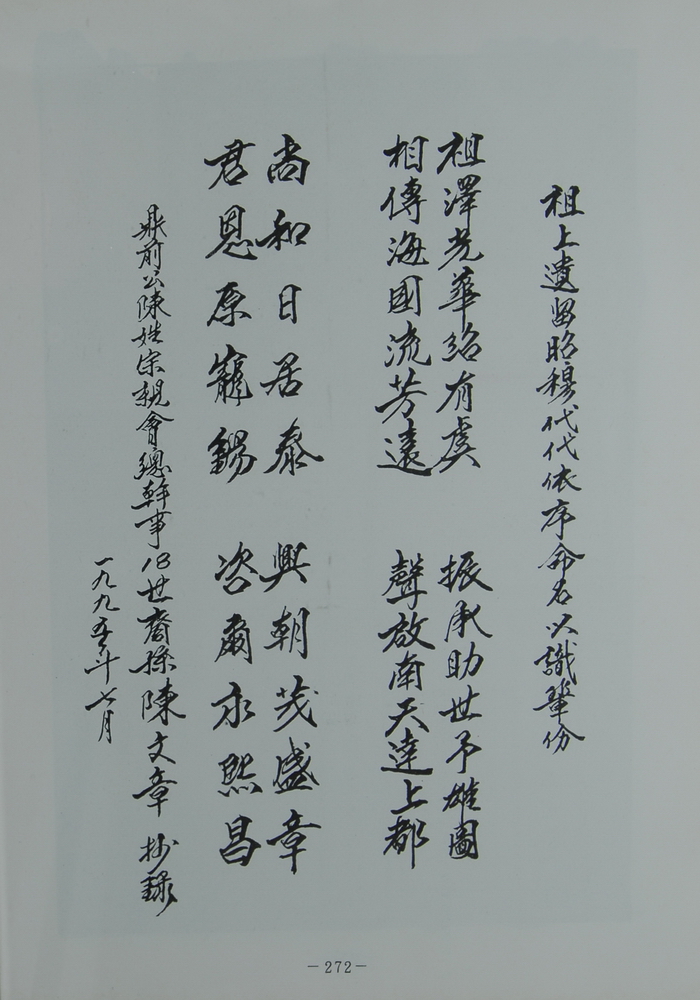 祖上遺留昭穆代代依序命名以識輩份
祖澤光華紹有虞 振承助世予雄圖
相傳海國流芳遠 聲放南天達上都
尚和日居泰 興朝茂盛章
君恩原寵錫 咨爾永熙昌
鼎前公陳姓宗親會總幹事18世裔孫陳文章 抄録
一九九五年七月
－272－